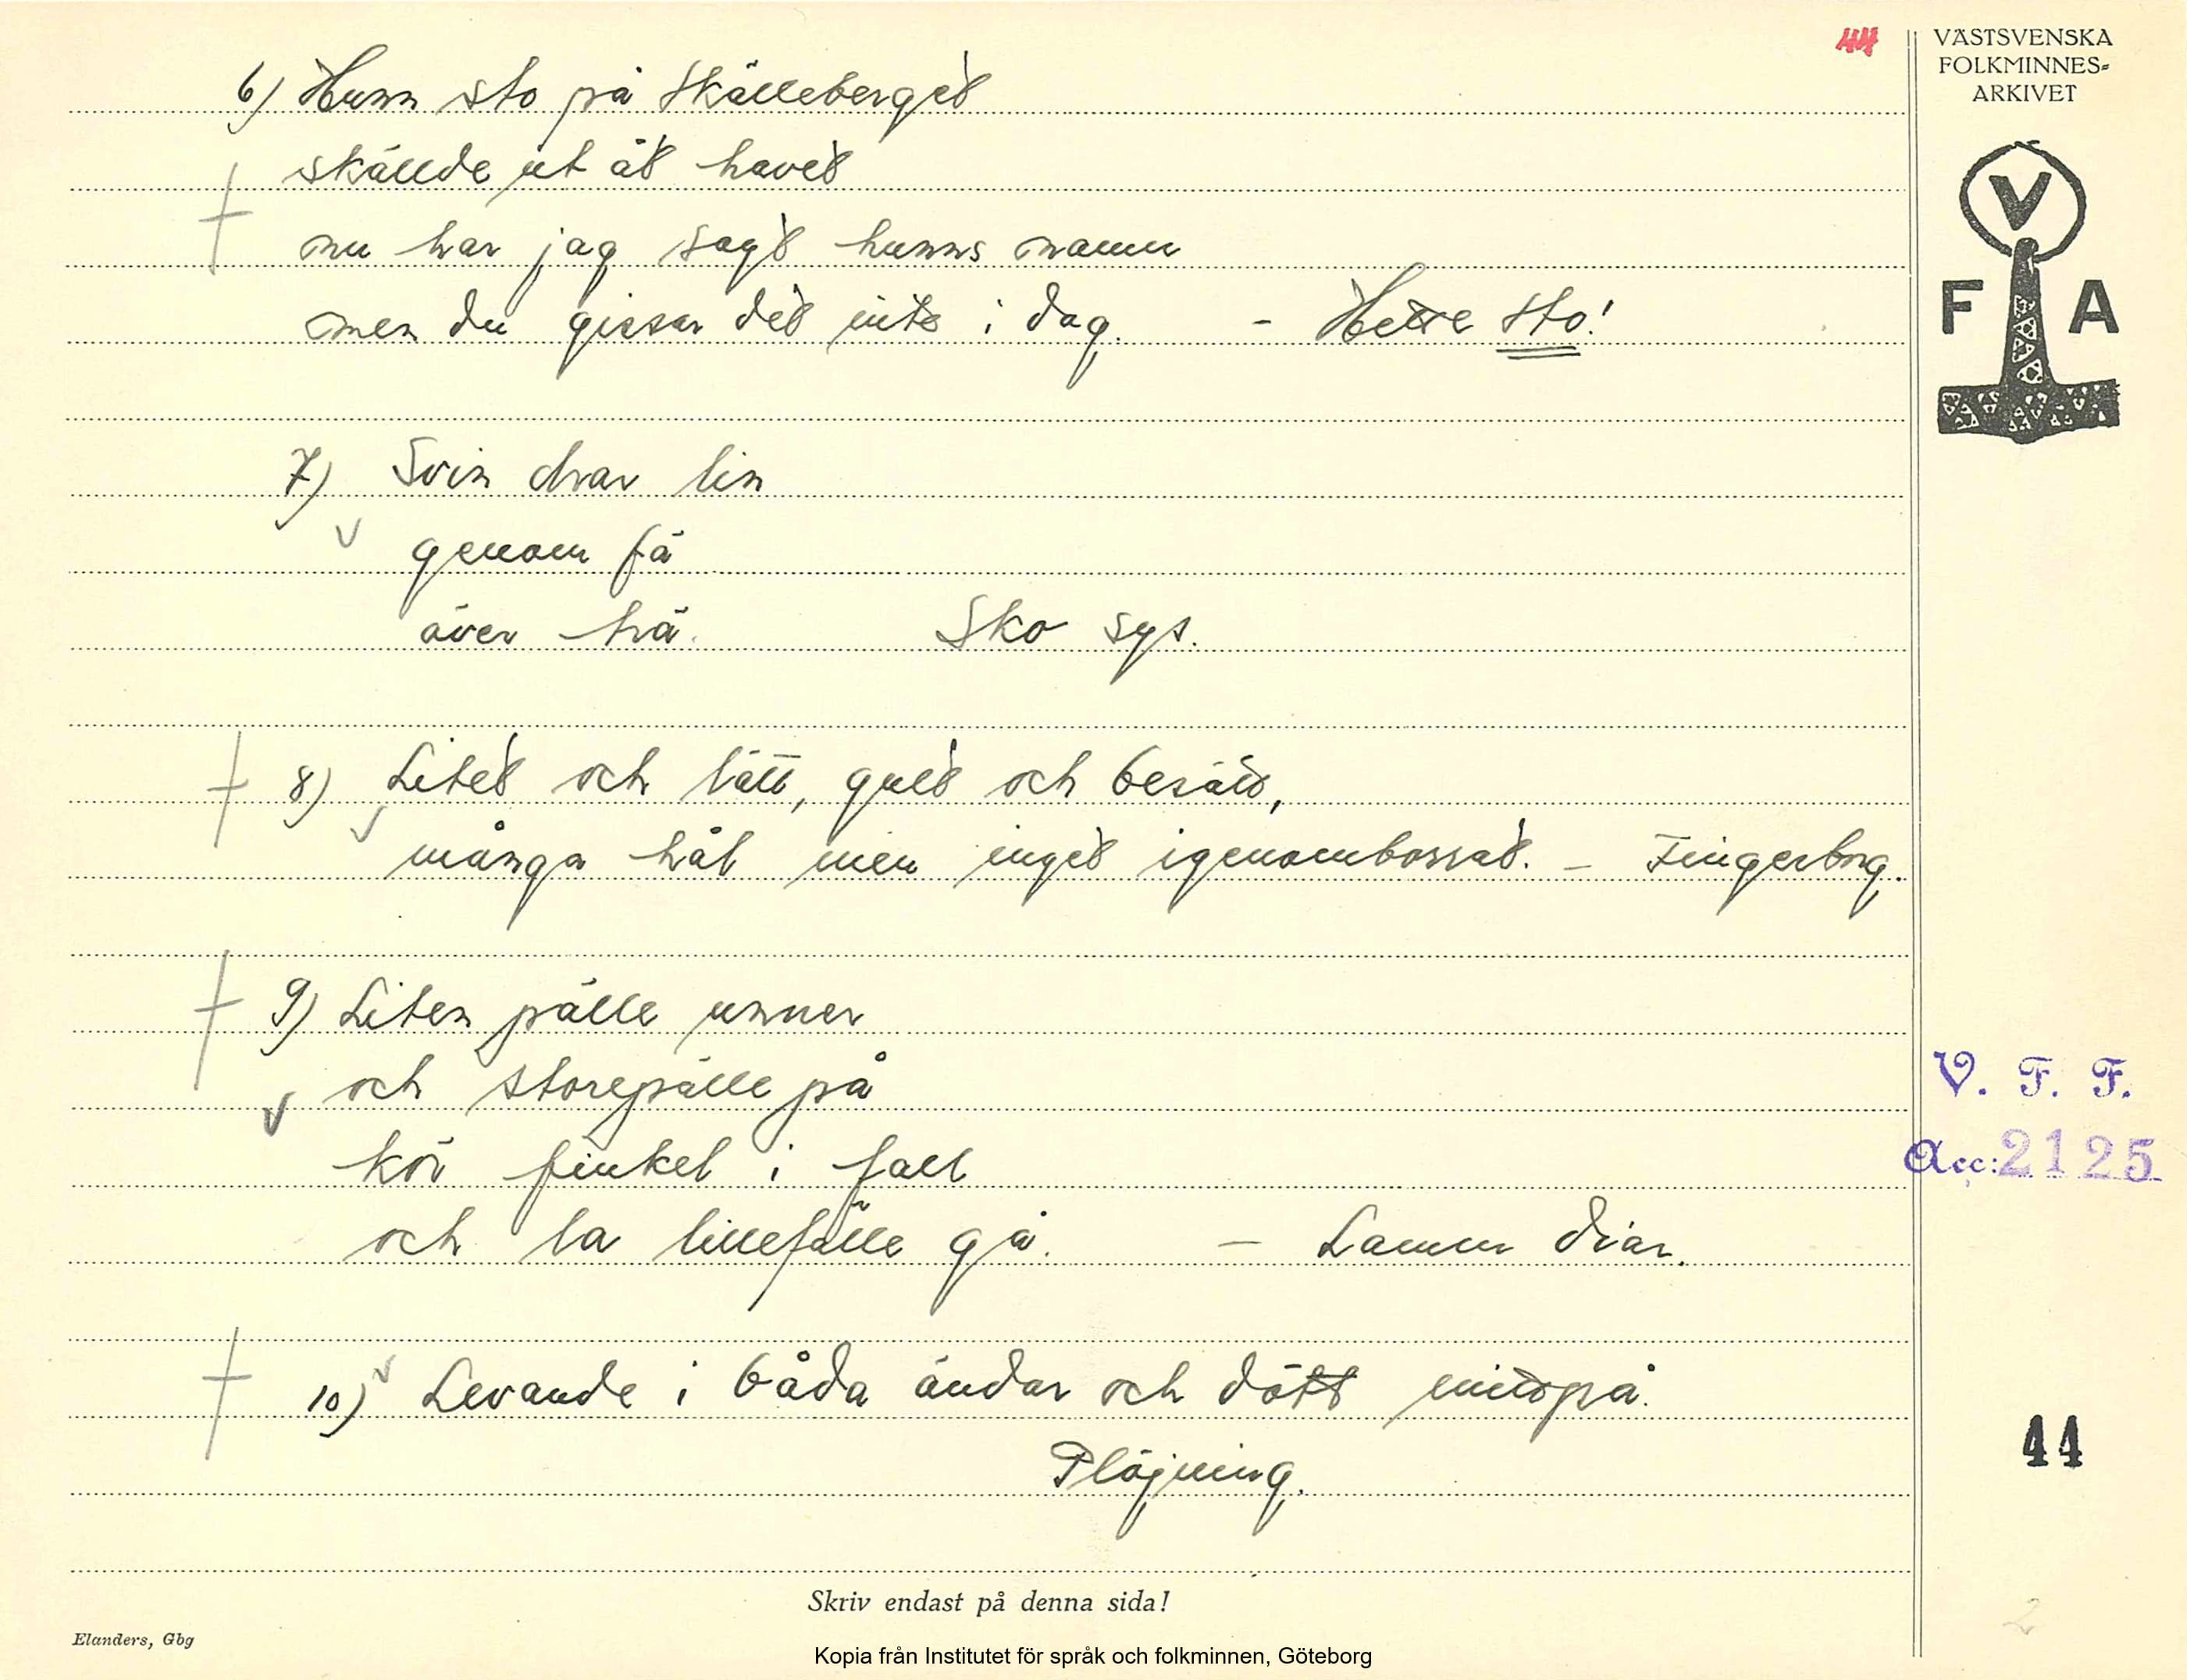 44
VÄSTSVENSKA
FOLKMINNES-
ARKIVET
V
F A
6) Hunn sto på Skälleberget
skällde ut åt havet
nu har jag sagt hunns namn
men du gissar det inte i dag. - Hette sto!
7) Svin drar lin
genom fä
över trä. Sko sys.
8) Litet och lätt, gult och besått,
många hål men inget igenomborrat. - Fingerborg.
9) Liten pälle unner
och storepälle på
kör finkel i fall
och la lillefälle gå. - Lamm diar.
10) Levande i båda ändar och dött mittpå.
Plöjning.
V. F. F.
Acc: 2125
44
2
Skriv endast på denna sida!
Elanders, Gbg
Kopia från Institutet för språk och folkminnen, Göteborg